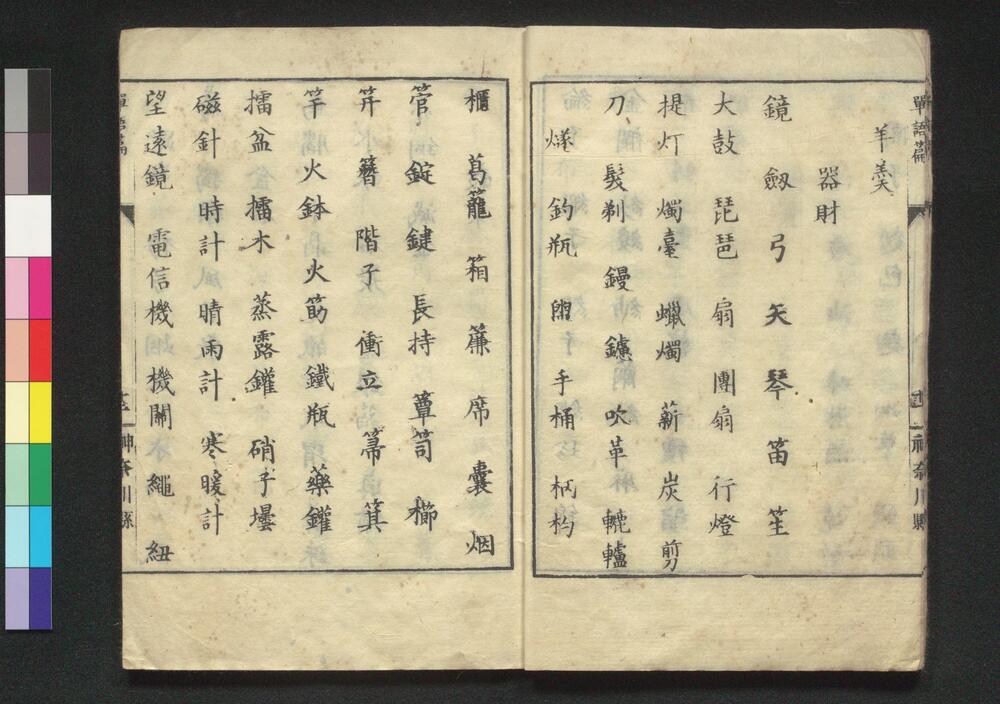 單語篇
羊羹
器財
鏡 劔 弓 矢 琴 笛 笙
大鼓 琵琶 扇 團扇 行燈
提灯 燭臺 蠟燭 薪 炭 剪
刀 髮剃 鏝 鑢 吹革 轆轤
釣瓶 手桶 柄杓
櫃 葛籠 箱 簾 席 囊 烟
管 錠 鍵 長持 簞笥 櫛
笄 簪 階子 衝立 箒 箕
竿 火鉢 火筯 鐵瓶 藥鑵
擂盆 擂木 蒸露鑵 硝子壜
磁針 時計 晴雨計 寒暖計
望遠鏡 電信機 機關 繩 紐
神奈川縣